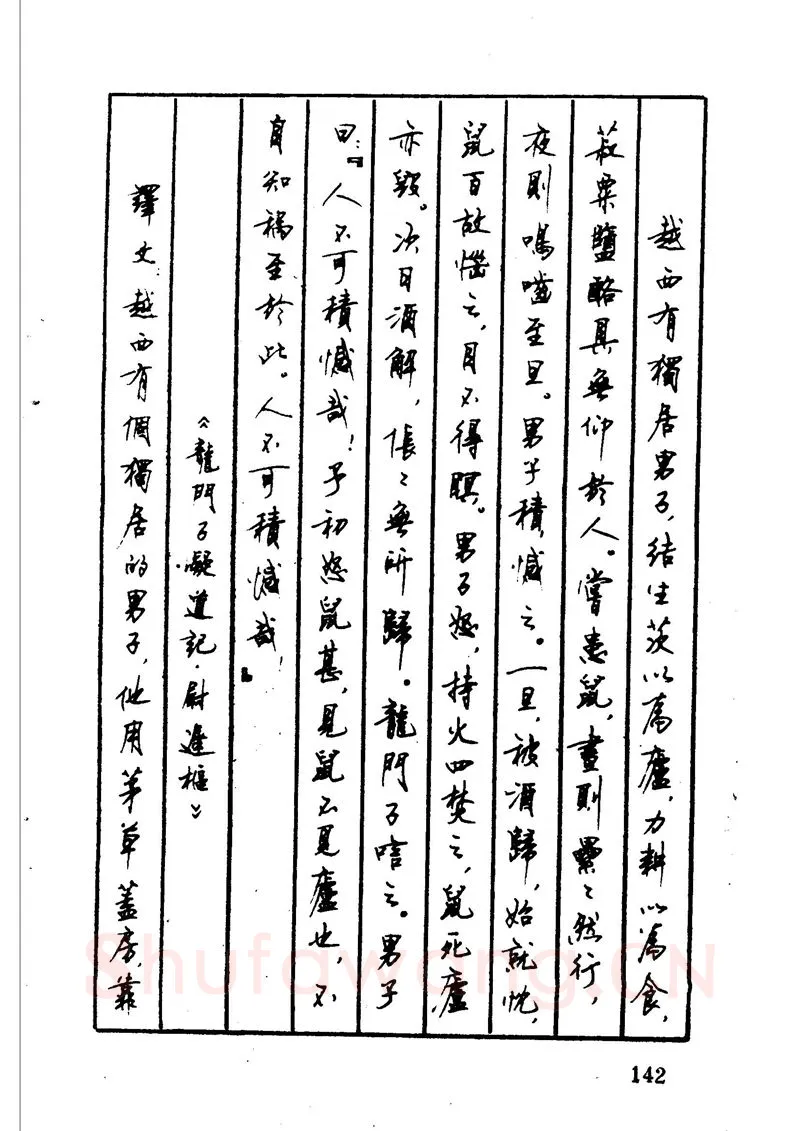 越西有獨居男子，結生茨以為廬，力耕以為食，
菽粟鹽酪具無仰於人。嘗患鼠，晝則纍纍然行，
夜則鳴嚙至旦。男子積憾之。一旦，被酒歸，始就枕，
鼠百故惱之，目不得瞑。男子怒，持火四焚之，鼠死廬
亦毀。次日酒解，倀〻無所歸。龍門子唁之。男子
曰：『人不可積憾哉！予初怒鼠甚，見鼠不見廬也，不
自知禍至於此。人不可積憾哉！』
《龍門子凝道記·尉遲樞》
譯文：越西有個獨居的男子，他用茅草蓋房，靠
142
Shufawang.CN